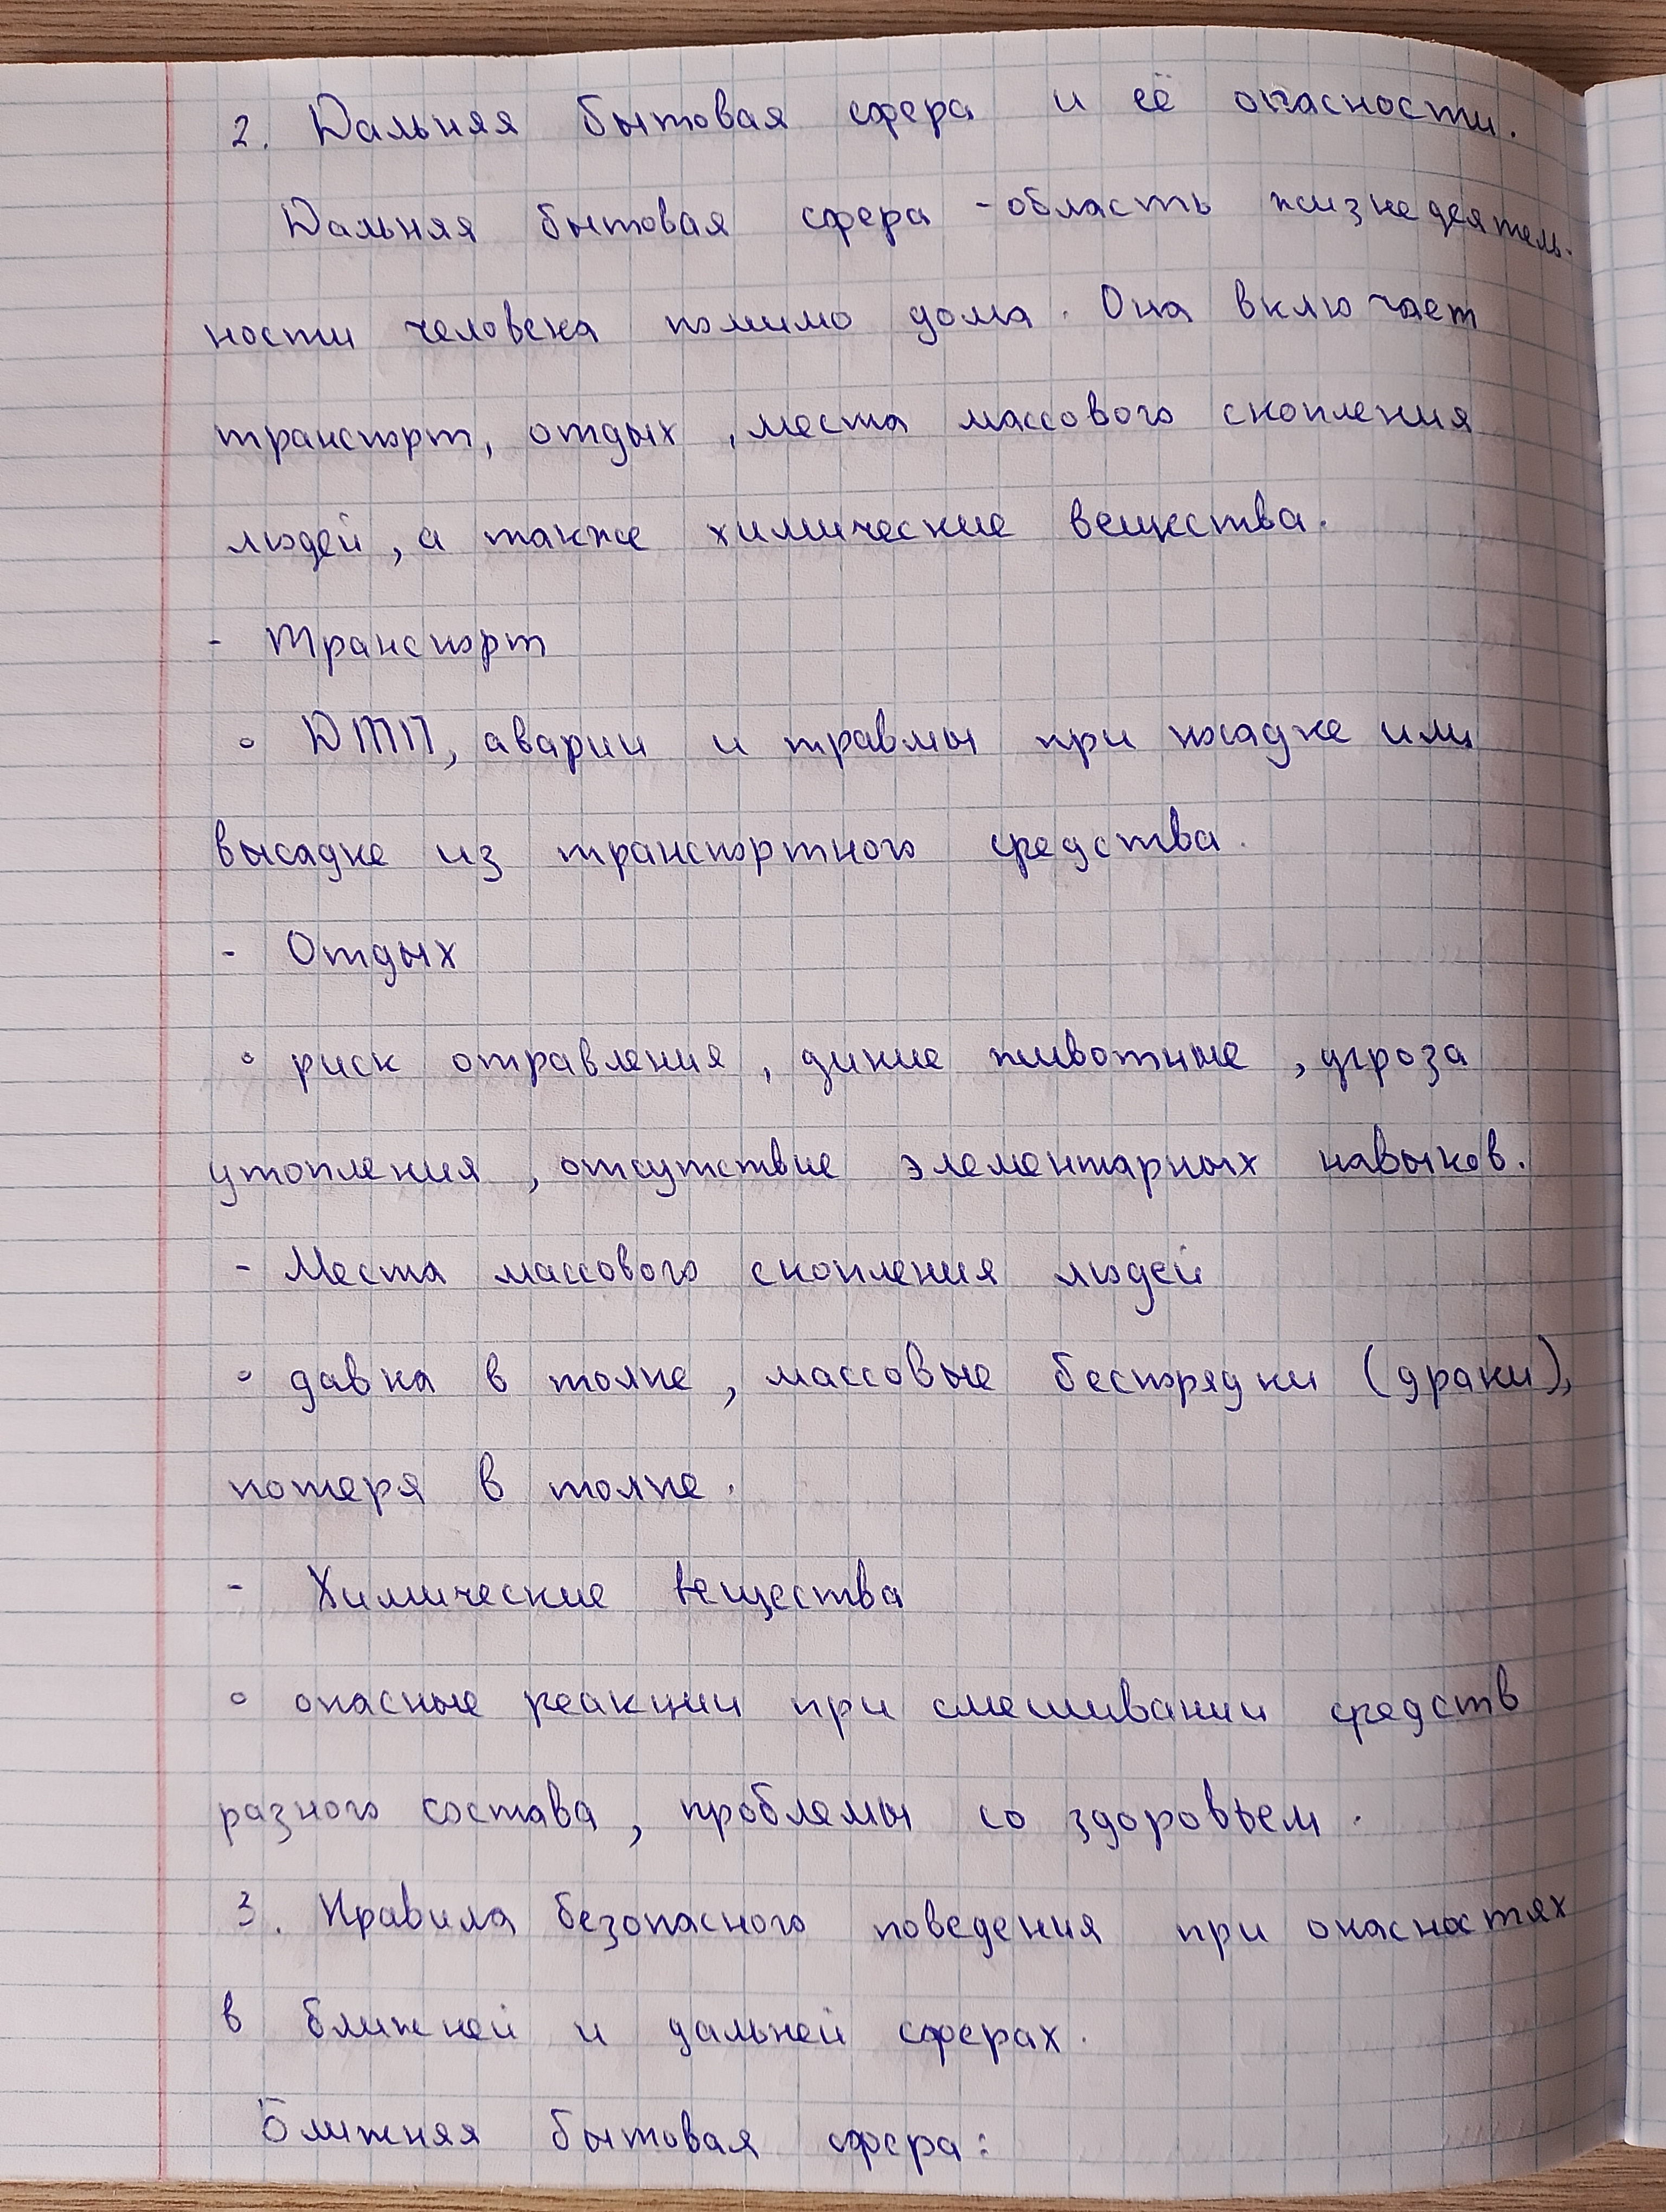 2. Дальняя бытовая сфера и её опасности.
Дальняя бытовая сфера - область жизнедеятель-
ности человека помимо дома. Она включает
транспорт, отдых, места массового скопления
людей, а также химические вещества.
- Транспорт
◦ ДТП, аварии и травмы при посадке или
высадке из транспортного средства.
- Отдых
◦ риск отравления, дикие животные, угроза
утопления, отсутствие элементарных навыков.
- Места массового скопления людей
◦ давка в толпе, массовые беспорядки (драки),
потеря в толпе.
- Химические вещества
◦ опасные реакции при смешивании средств
разного состава, проблемы со здоровьем.
3. Правила безопасного поведения при опасностях
в ближней и дальней сферах.
Ближняя бытовая сфера: